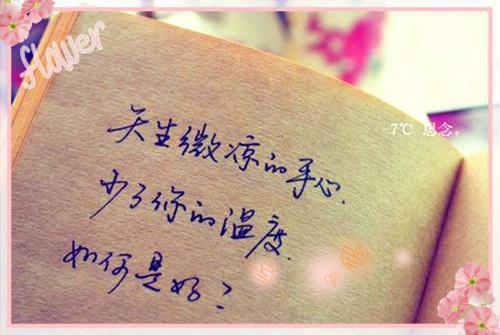 flower
天生微凉的手心.
少了你的温度.
如何是好？
-7℃ 思念。